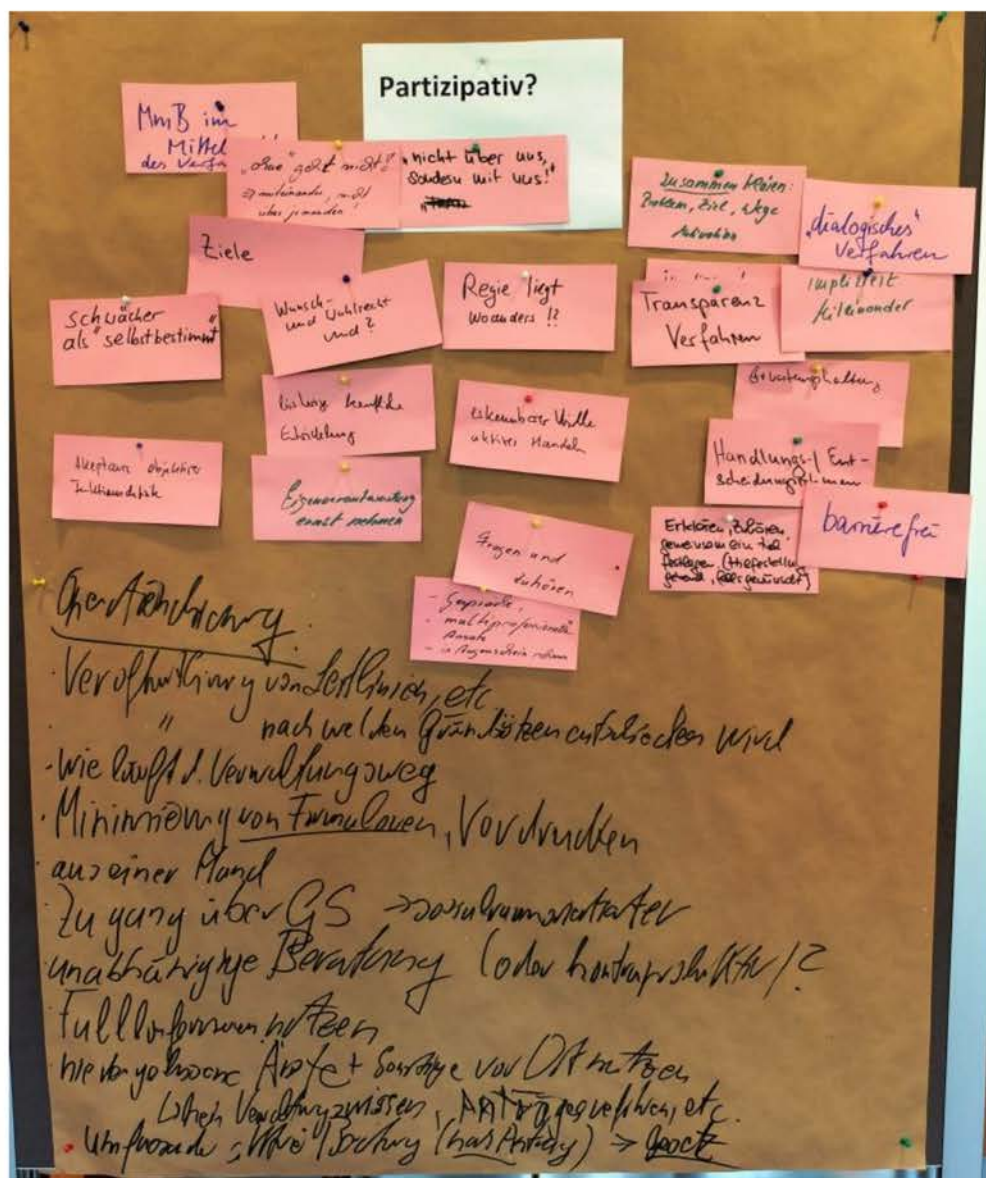 Partizipativ?
MmB im
Mittel
des Verfa
"ohne" geht nicht?
→ miteinander, nicht
über jemanden!
"nicht über uns,
sondern mit uns!"
Zusammen klären:
Problem, Ziel, Wege
Motivation
"dialogisches"
Verfahren
Ziele
schwächer
als "selbstbestimmt"
Wunsch-
und Wahlrecht
und?
Regie liegt
woanders !?
Transparenz
Verfahren
impliziert
Miteinander
bisherige berufliche
Entwicklung
erkennbarer Wille
aktives Handeln
Erwartungshaltung
Akzeptanz objektiver
Eigenverantwortung
ernst nehmen
Handlungs-/Ent-
scheidungsrahmen
Fragen und
zuhören
Erklären, Zuhören,
gemeinsam ein Ziel
festlegen
barrierefrei
- Gespräche,
- multiprofessioneller
Ansatz
- in Augenschein nehmen
· Veröffentlichung von Leitlinien, etc
· " nach welchen Grundsätzen entschieden wird
· Wie läuft d. Verwaltungsweg
· Minimierung von Formularen, Vordrucken
· aus einer Hand
· Zugang über GS → sozialraumorientierter
· unabhängige Beratung (oder kontraproduktiv)?
· Fallkonferenzen nutzen
· niedergelassene Ärzte + Sonstige vor Ort nutzen
Verwaltungswissen, Antragsverfahren, etc.
· Umfassende